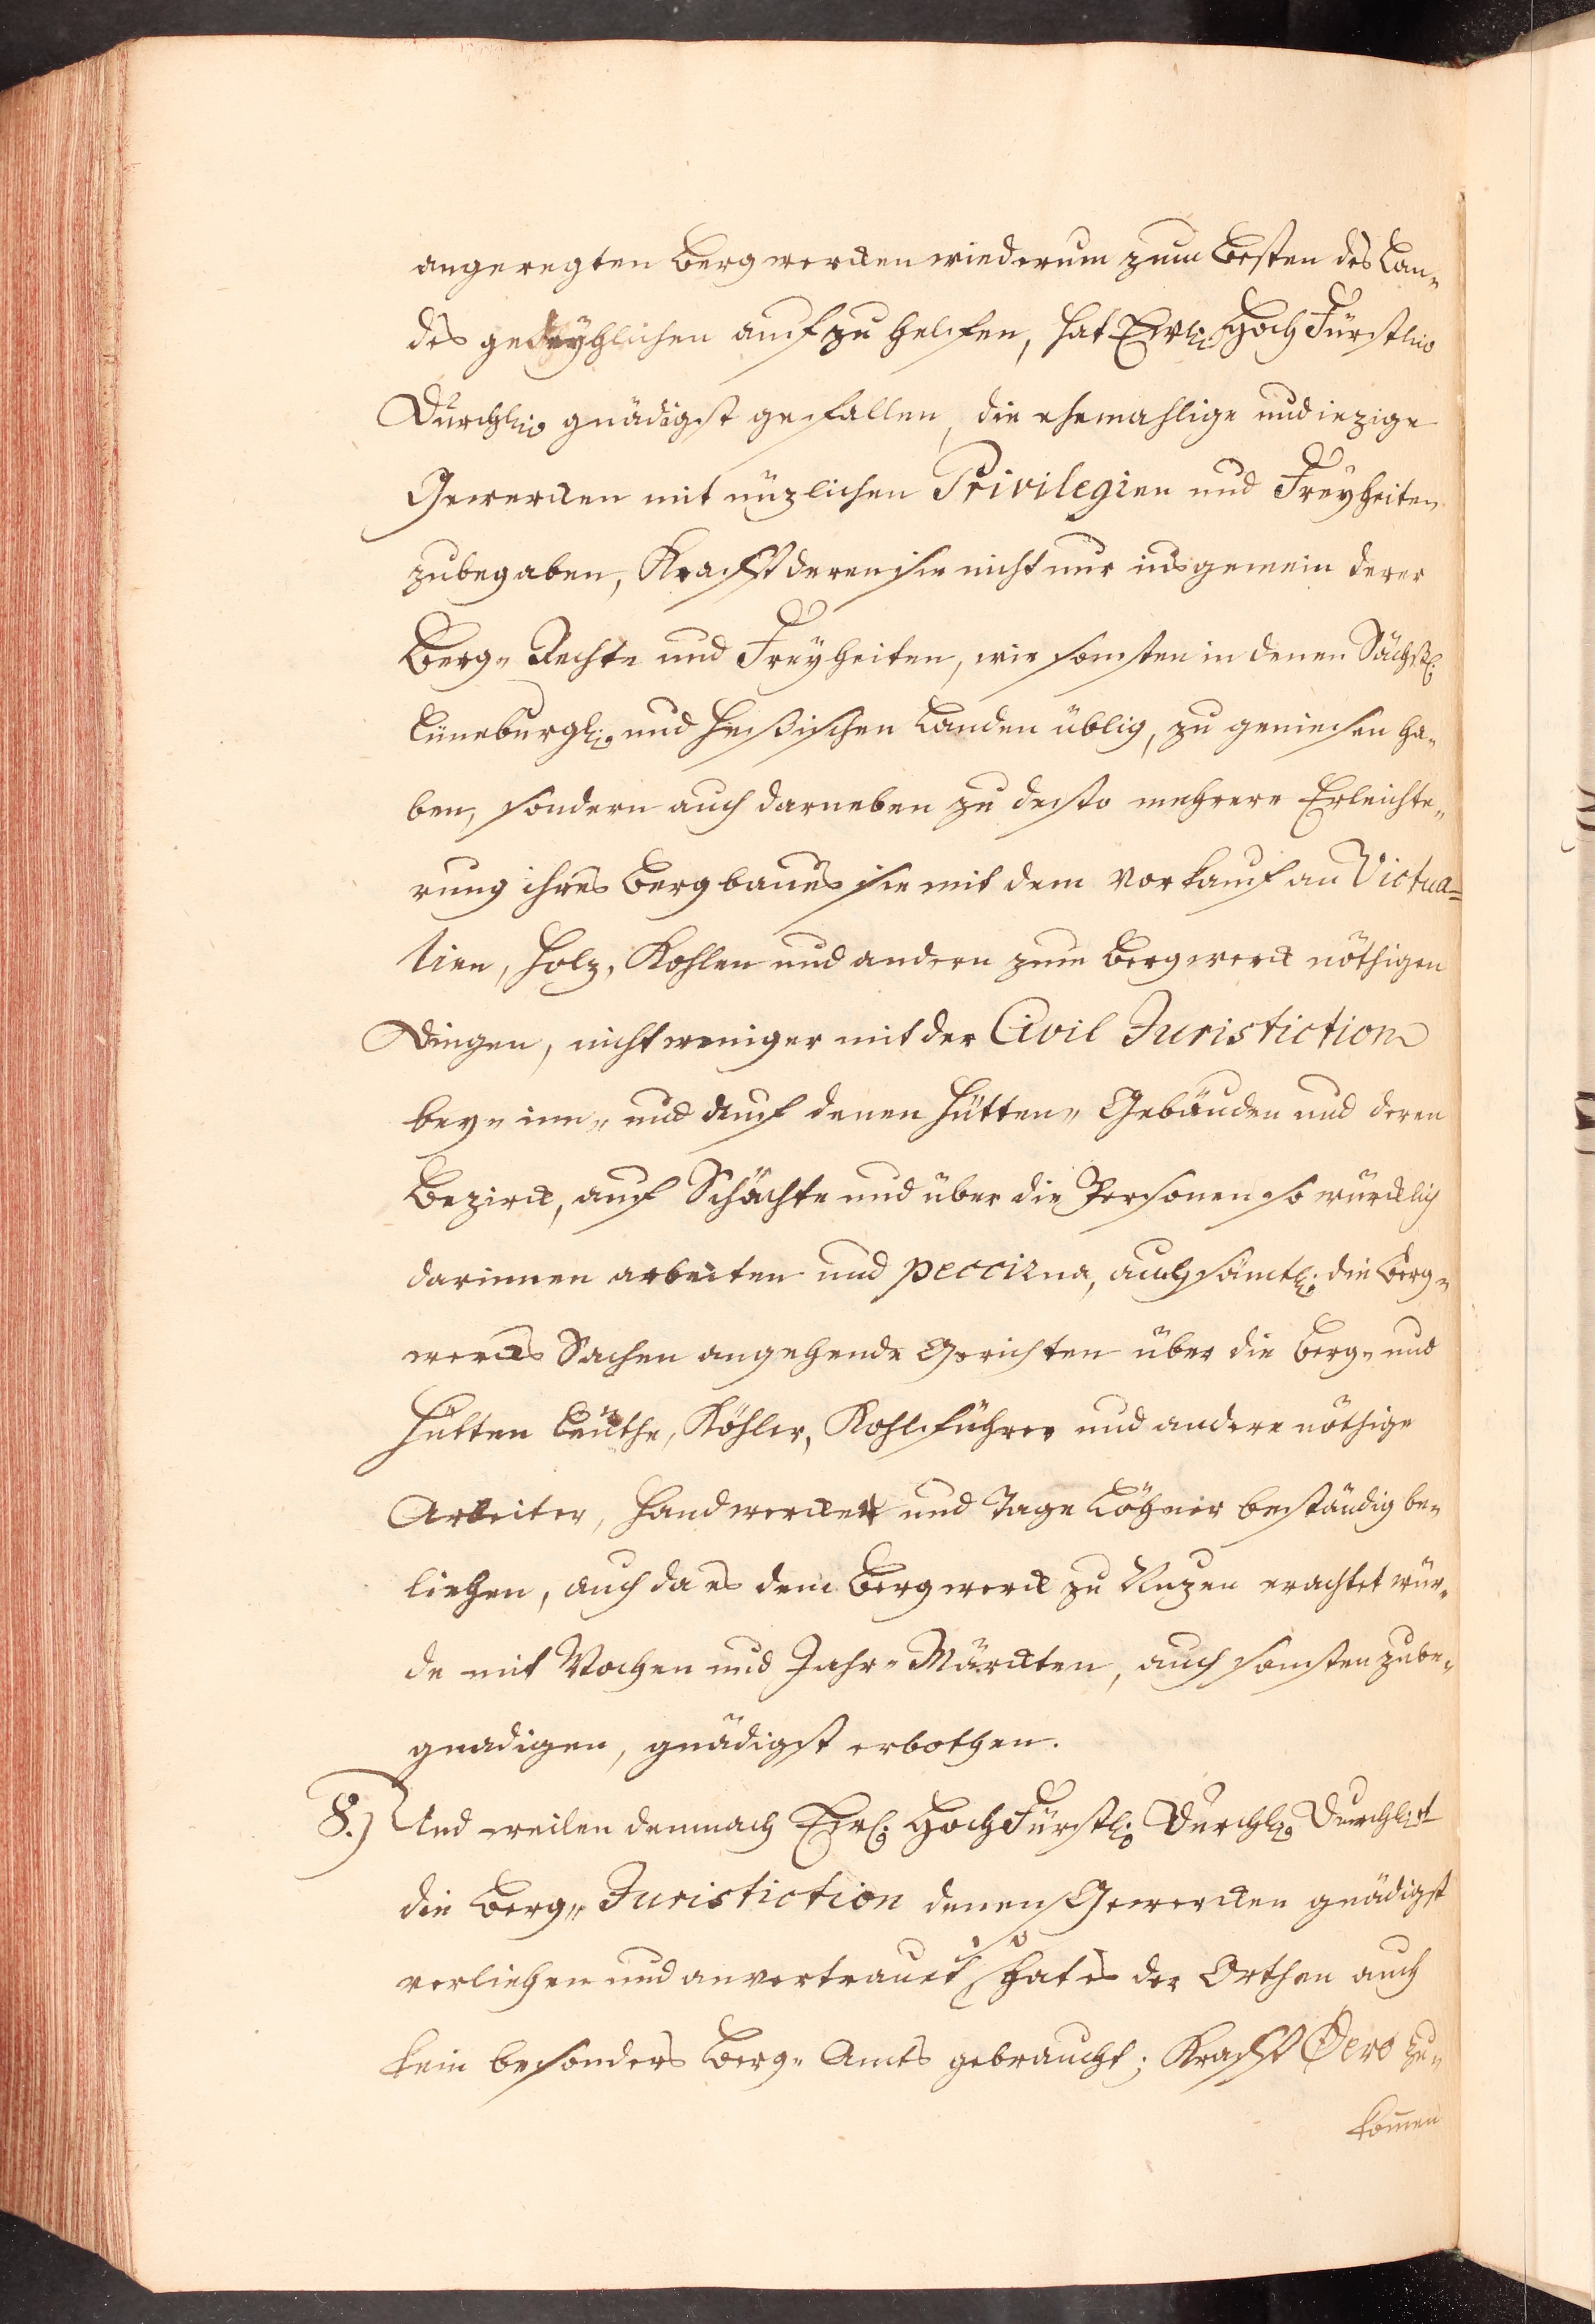 angeregten Bergwercken wiederum zum Besten des Lan„
des gedeyhlichen aufzuhelfen, hat Ewl. HochFürstliche
Durchl. gnädigst gefallen, die ehemahlige und iezige
Gewercken mit nüzlichen Privilegien und Freyheiten
zubegaben, Krafft deren sie nicht nur insgemein derer
Berg„ Rechte und Freyheiten, wie sonsten in denen Sächßl.
Lüneburgl. und Heßischen Landen üblig, zu geniesen ha„
ben, sondern auch darneben zu desto mehrere Erleichte„
rung ihres Bergbaues sie mit dem Vorkauf an Victua=
lien, Holz, Kohlen und andern zum Bergwerck nöthigen
Dingen, nicht weniger mit der Civil Juristiction
bey„ inn„ und auf denen Hütten„ Gebäuden und deren
Bezirck, auf Schächte und über die Personen so würcklich
darinnen arbeiten und pecciren, auch sämtl. die Berg„
wercks Sachen angehende Gerichten über die Berg„ und
Hütten Leuthe, Köhler, Kohlführer und andere nöthige
Arbeiter, Handwercker und Tage Löhner beständig be„
liehen, auch da es dem Bergwerck zu Nuzen erachtet wür„
de mit Wochen und Jahr„ Märckten, auch sonsten zube„
gnadigen, gnädigst erbothen.
8.) Und weilen demnach Ewl. HochFürstl. Durchl. Durchl.
die Berg„ Juristiction denen Gewercken gnädigst
verliehen und anvertrauet, so hat es der Orthen auch
kein besonders Berg„ Amts gebraucht; Krafft Dero zu„
kommen